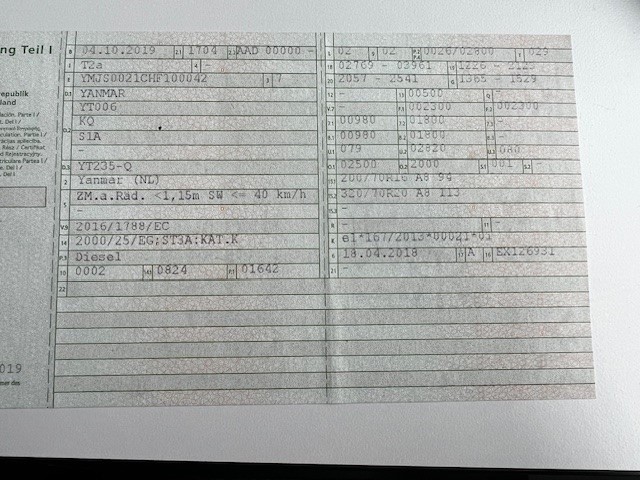 ng Teil I
epublik
land
B 04.10.2019 2.1 1704 2.2 AAD 00000 -
J T2a 4 -
E YMJS0021CHF100042 3 7
D.1 YANMAR
YT006
D.2 KQ
S1A
-
D.3 YT235-Q
2 Yanmar (NL)
5 ZM.a.Rad. <1,15m SW <= 40 km/h
-
V.9 2016/1788/EC
14 2000/25/EG;ST3A:KAT.K
P.3 Diesel
10 0002 14.1 0824 P.1 01642
22
L 02 9 02 0026/02800 T 029
18 02769 - 03961 19 1226 -
20 2057 - 2541 G 1365 - 1529
12 - 13 00500 Q -
V.7 - F.1 002300 F.2 002300
7.1 00980 7.2 01800 7.3 -
8.1 00980 8.2 01800 8.3 -
U.1 079 U.2 02820 U.3 080
O.1 02500 O.2 2000 S.1 001 S.2 -
15.1 200/70R16 A8 94
15.2 320/70R20 A8 113
15.3 -
R - 11 -
K e1*167/2013*00021*01
6 18.04.2018 17 A 16 EX126931
21 -
019